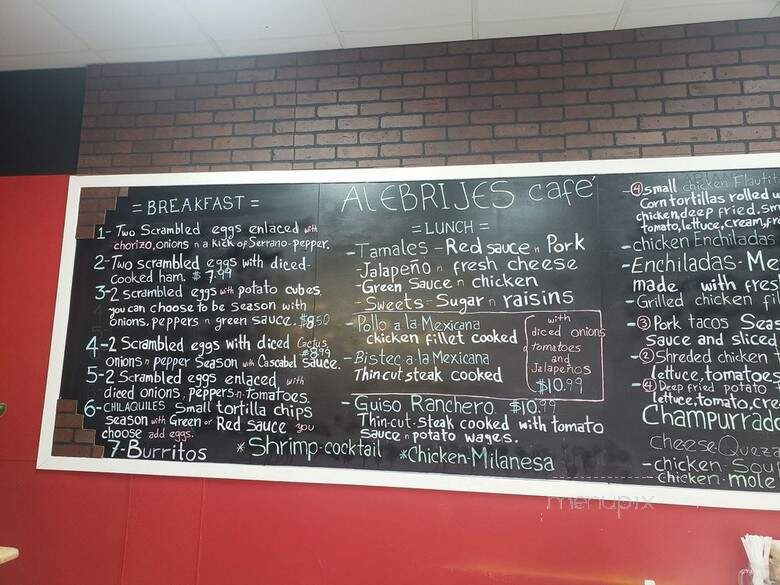 = BREAKFAST =
1- Two Scrambled eggs enlaced with
chorizo, onions n a kick of Serrano-pepper.
2- Two scrambled eggs with diced
cooked ham. $7.99
3-2 scrambled eggs with potato cubes
you can choose to be season with
onions, peppers n green sauce. $8.50
4-2 Scrambled eggs with diced Cactus
onions n pepper Season with Cascabel sauce. $8.99
5-2 Scrambled eggs enlaced with
diced onions, peppers n tomatoes.
6-CHILAQUILES Small tortilla chips
season with Green or Red sauce you
choose add eggs.
7-Burritos
*Shrimp-cocktail *Chicken-Milanesa
ALEBRIJES café
= LUNCH =
-Tamales - Red sauce n Pork
-Jalapeño n fresh cheese
-Green Sauce n chicken
-Sweets-Sugar n raisins
-Pollo a la Mexicana
chicken fillet cooked
-Bistec a-la Mexicana
Thin cut steak cooked
with
diced onions
tomatoes
and
Jalapeños
$10.99
-Guiso Ranchero. $10.99
Thin-cut-steak cooked with tomato
Sauce n potato wages.
-④small chicken Flautit
Corn tortillas rolled w
chicken, deep fried. sm
tomato, lettuce, cream, fr
-chicken Enchiladas
-Enchiladas-Me
made with fres
-Grilled chicken fi
-③Pork tacos Sea
Sauce and sliced
-②Shredded chicken
lettuce, tomatoes
-④Deep fried potato
lettuce, tomato, cre
Champurrado
cheese Queza
-chicken-Sou
-chicken-mole
menupix